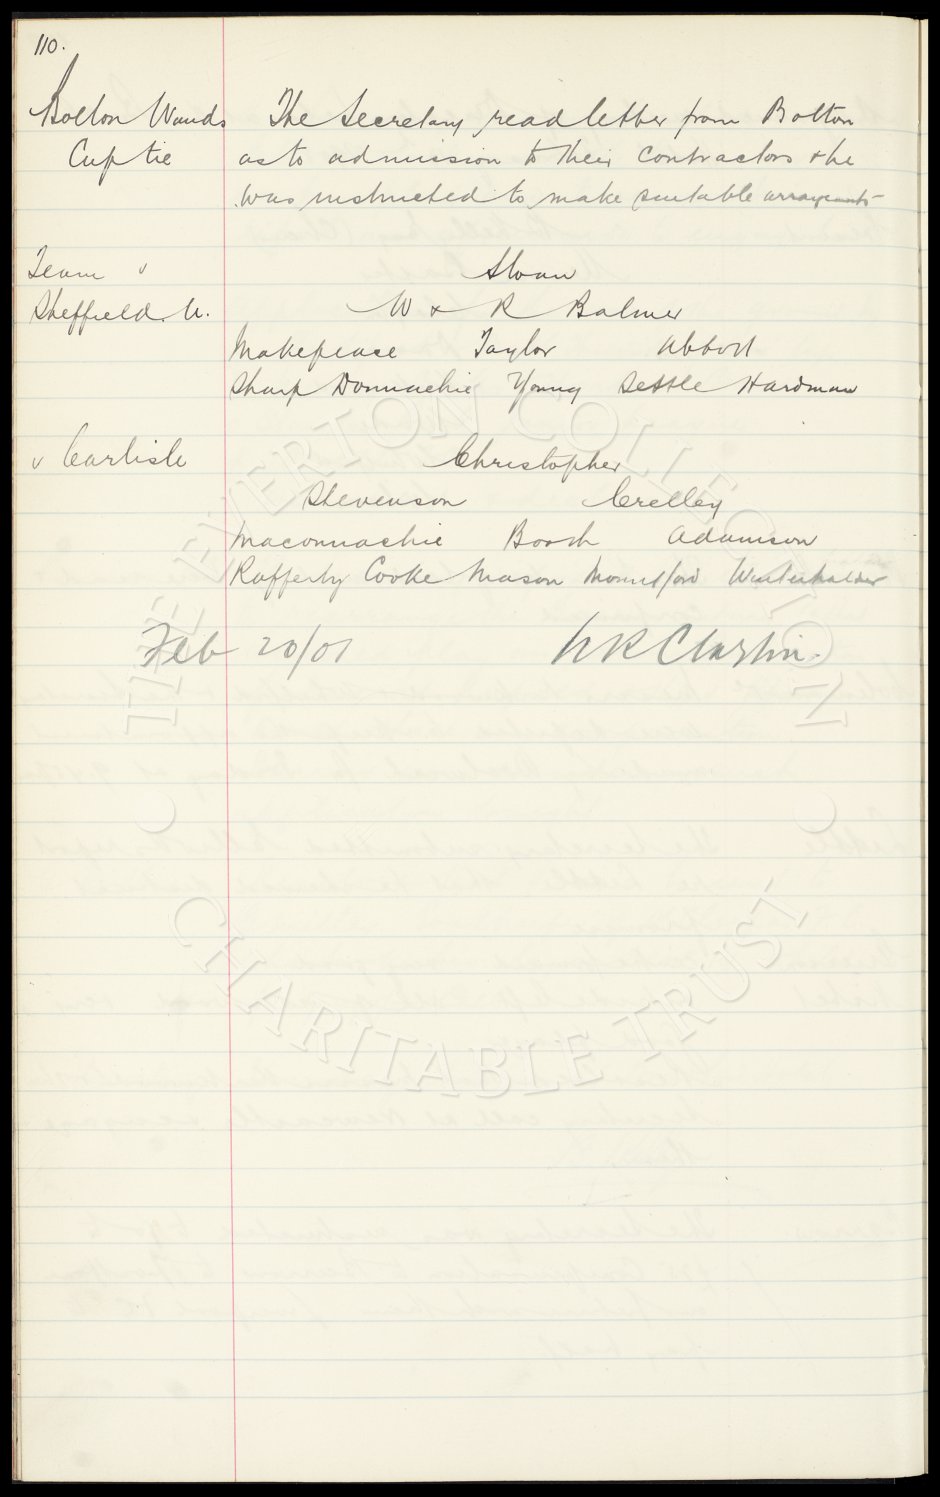 110.
Bolton Wands The Secretary read letter from Bolton
Cup tie as to admission to their contractors & he
was instructed to make suitable arrangements
Team v Sloan
Sheffield. U. W & R Balmer
Makepeace Taylor Abbott
Sharp Donnachie Young Settle Hardman
v Carlisle Christopher
Stevenson Crelley
Maconnachie Booth Adamson
Rafferty Cooke Mason Mountford Winterhalder
Feb 20/07 W R Clayton.
THE EVERTON COLLECTION
CHARITABLE TRUST